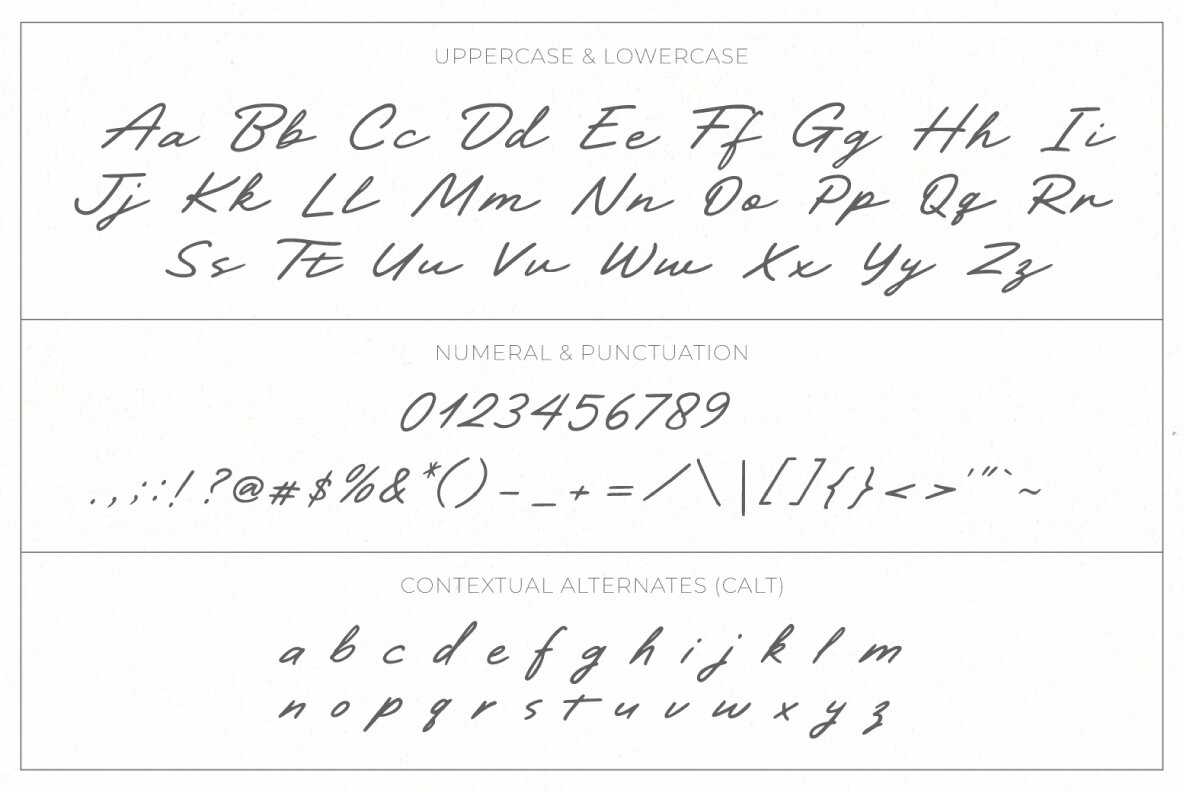 UPPERCASE & LOWERCASE
Aa Bb Cc Dd Ee Ff Gg Hh Ii
Jj Kk Ll Mm Nn Oo Pp Qq Rr
Ss Tt Uu Vv Ww Xx Yy Zz
NUMERAL & PUNCTUATION
0123456789
.,;:!?@#$%&*()-_+=/\|[]{}<>'"`~
CONTEXTUAL ALTERNATES (CALT)
a b c d e f g h i j k l m
n o p q r s t u v w x y z